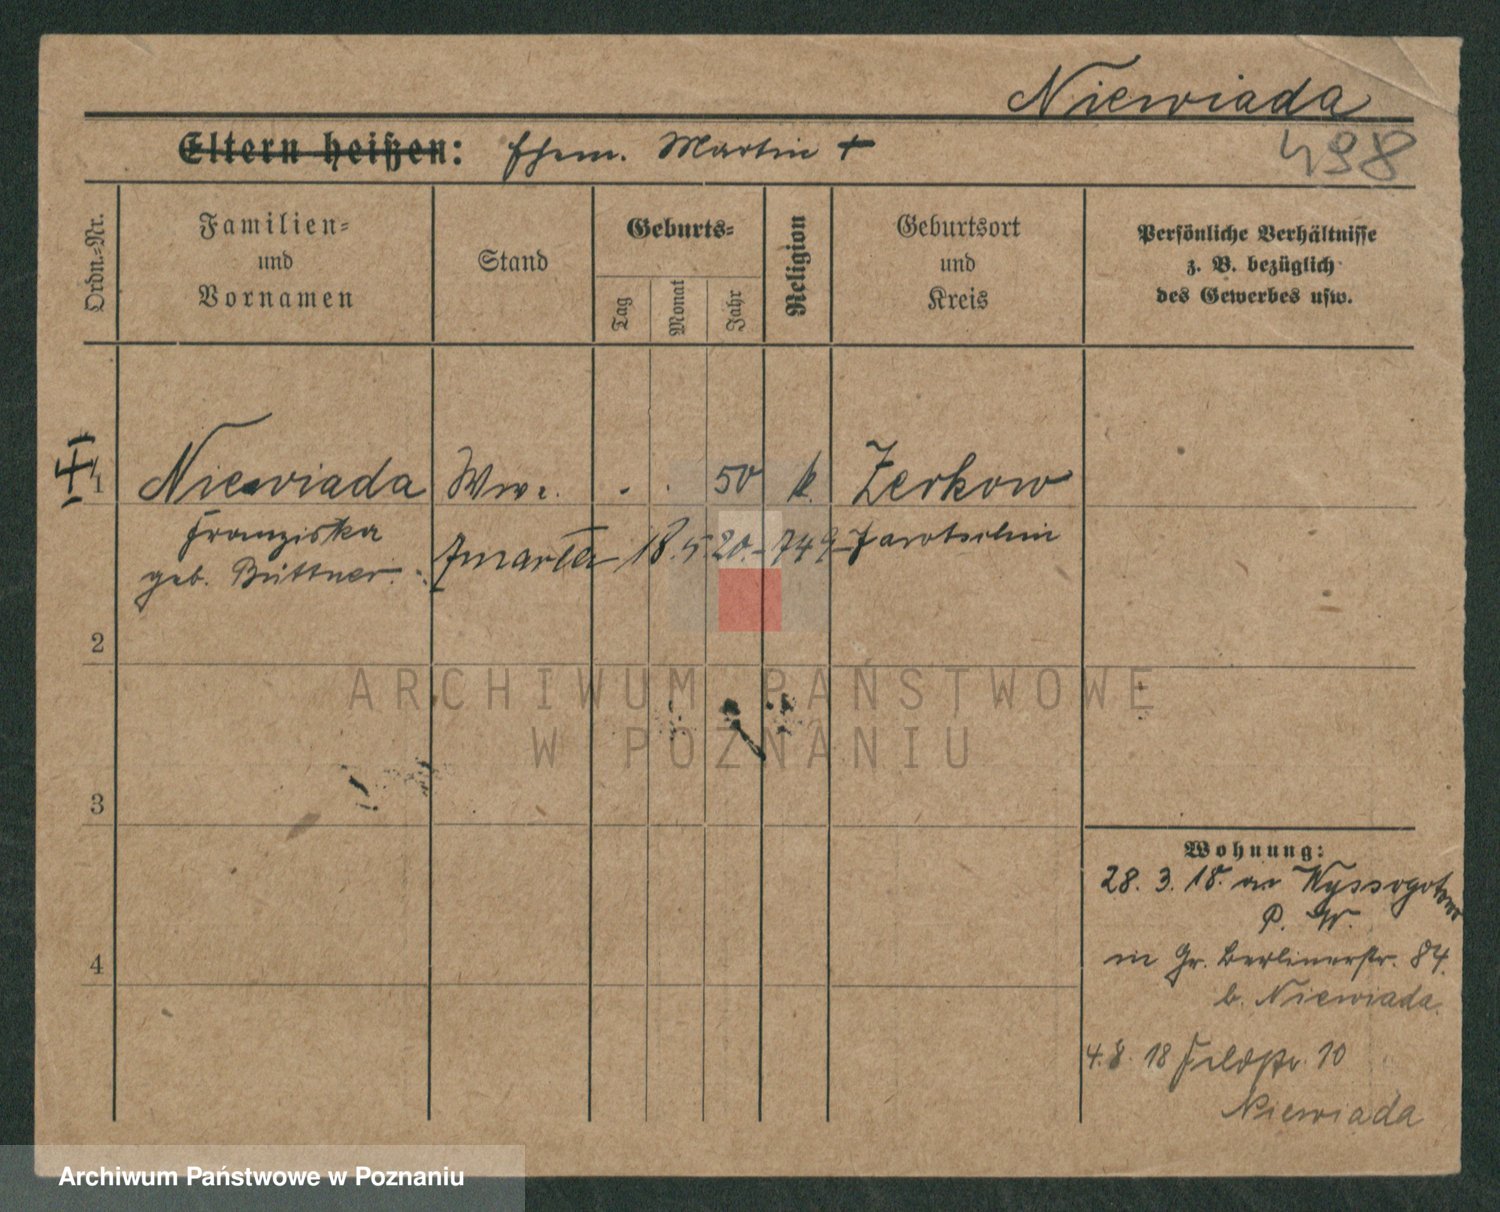 Niewiada
498
Eltern heißen: Ehem. Martin +
Ordn.-Nr.
Familien-
und
Vornamen
Stand
Geburts-
Tag
Monat
Jahr
Religion
Geburtsort
und
Kreis
Persönliche Verhältnisse
z. B. bezüglich
des Gewerbes usw.
1 Niewiada Wwe. . . 50 k. Zerkow
Franziska
geb. Büttner. zmarła 18.5.20.-749- Jarotschin
2
3
4
Wohnung:
28. 3. 18. an Wyssogotowo
P. W.
in Gr. Berlinerstr. 84.
b. Niewiada.
4. 8. 18 Feldstr. 10
Niewiada
ARCHIWUM PAŃSTWOWE
W POZNANIU
Archiwum Państwowe w Poznaniu